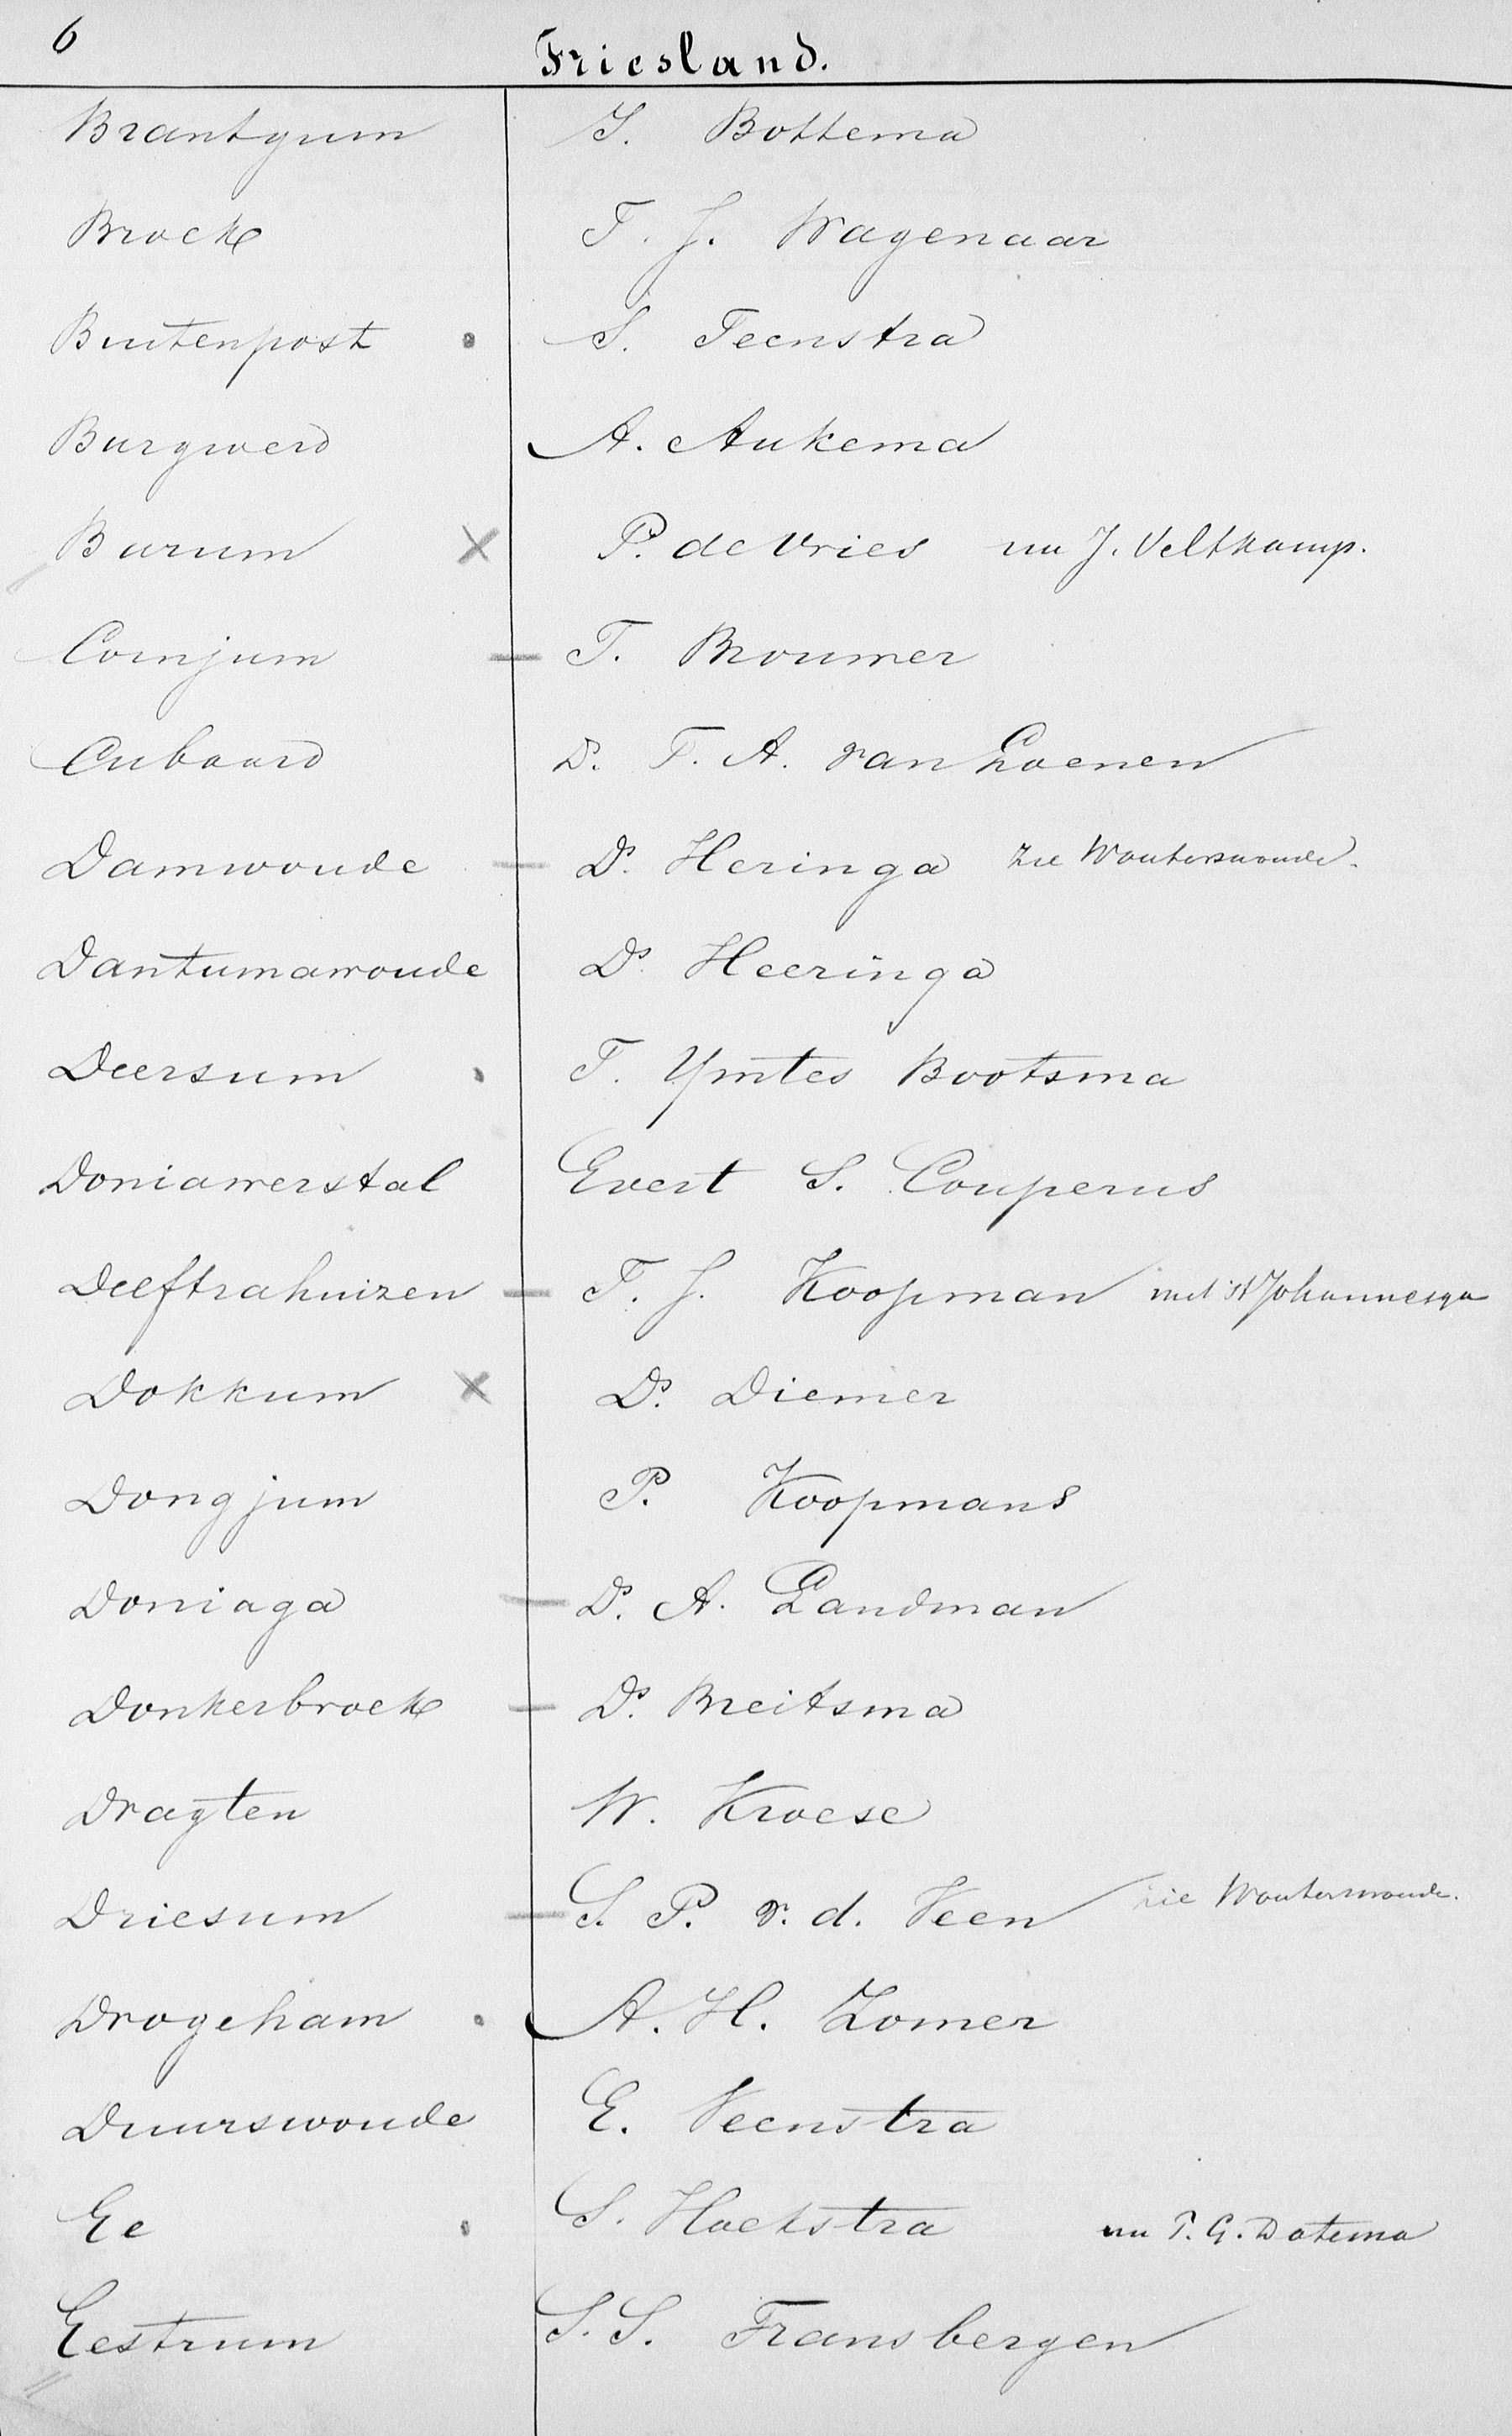 6
Friesland.
Brantgum S. Bottema
Broek T. J. Wagenaar
Buitenpost S. Teenstra
Burgwerd A. Aukema
Burum × P. de Vries nu J. Veltkamp.
Cornjum — T. Brouwer
Cubaard Ds. T. A. van Loenen
Damwoude — Ds. Heringa zie Wouterswoude.
Dantumawoude Ds. Heeringa
Deersum T. Ymtes Bootsma
Doniawerstal Evert S. Couperus
Delftrahuizen — T. J. Koopman met St Johannesga
Dokkum × Ds. Diemer
Dongjum P. Koopmans
Doniaga — Ds. A. Landman
Donkerbroek — Ds. Breitsma
Dragten W. Kroese
Driesum — S. P. v. d. Veen zie Wouterswoude.
Drogeham A. H. Zomer
Duurswoude E. Veenstra
Ee S. Hoekstra nu P. G. Datema
Eestrum S. S. Fransbergen